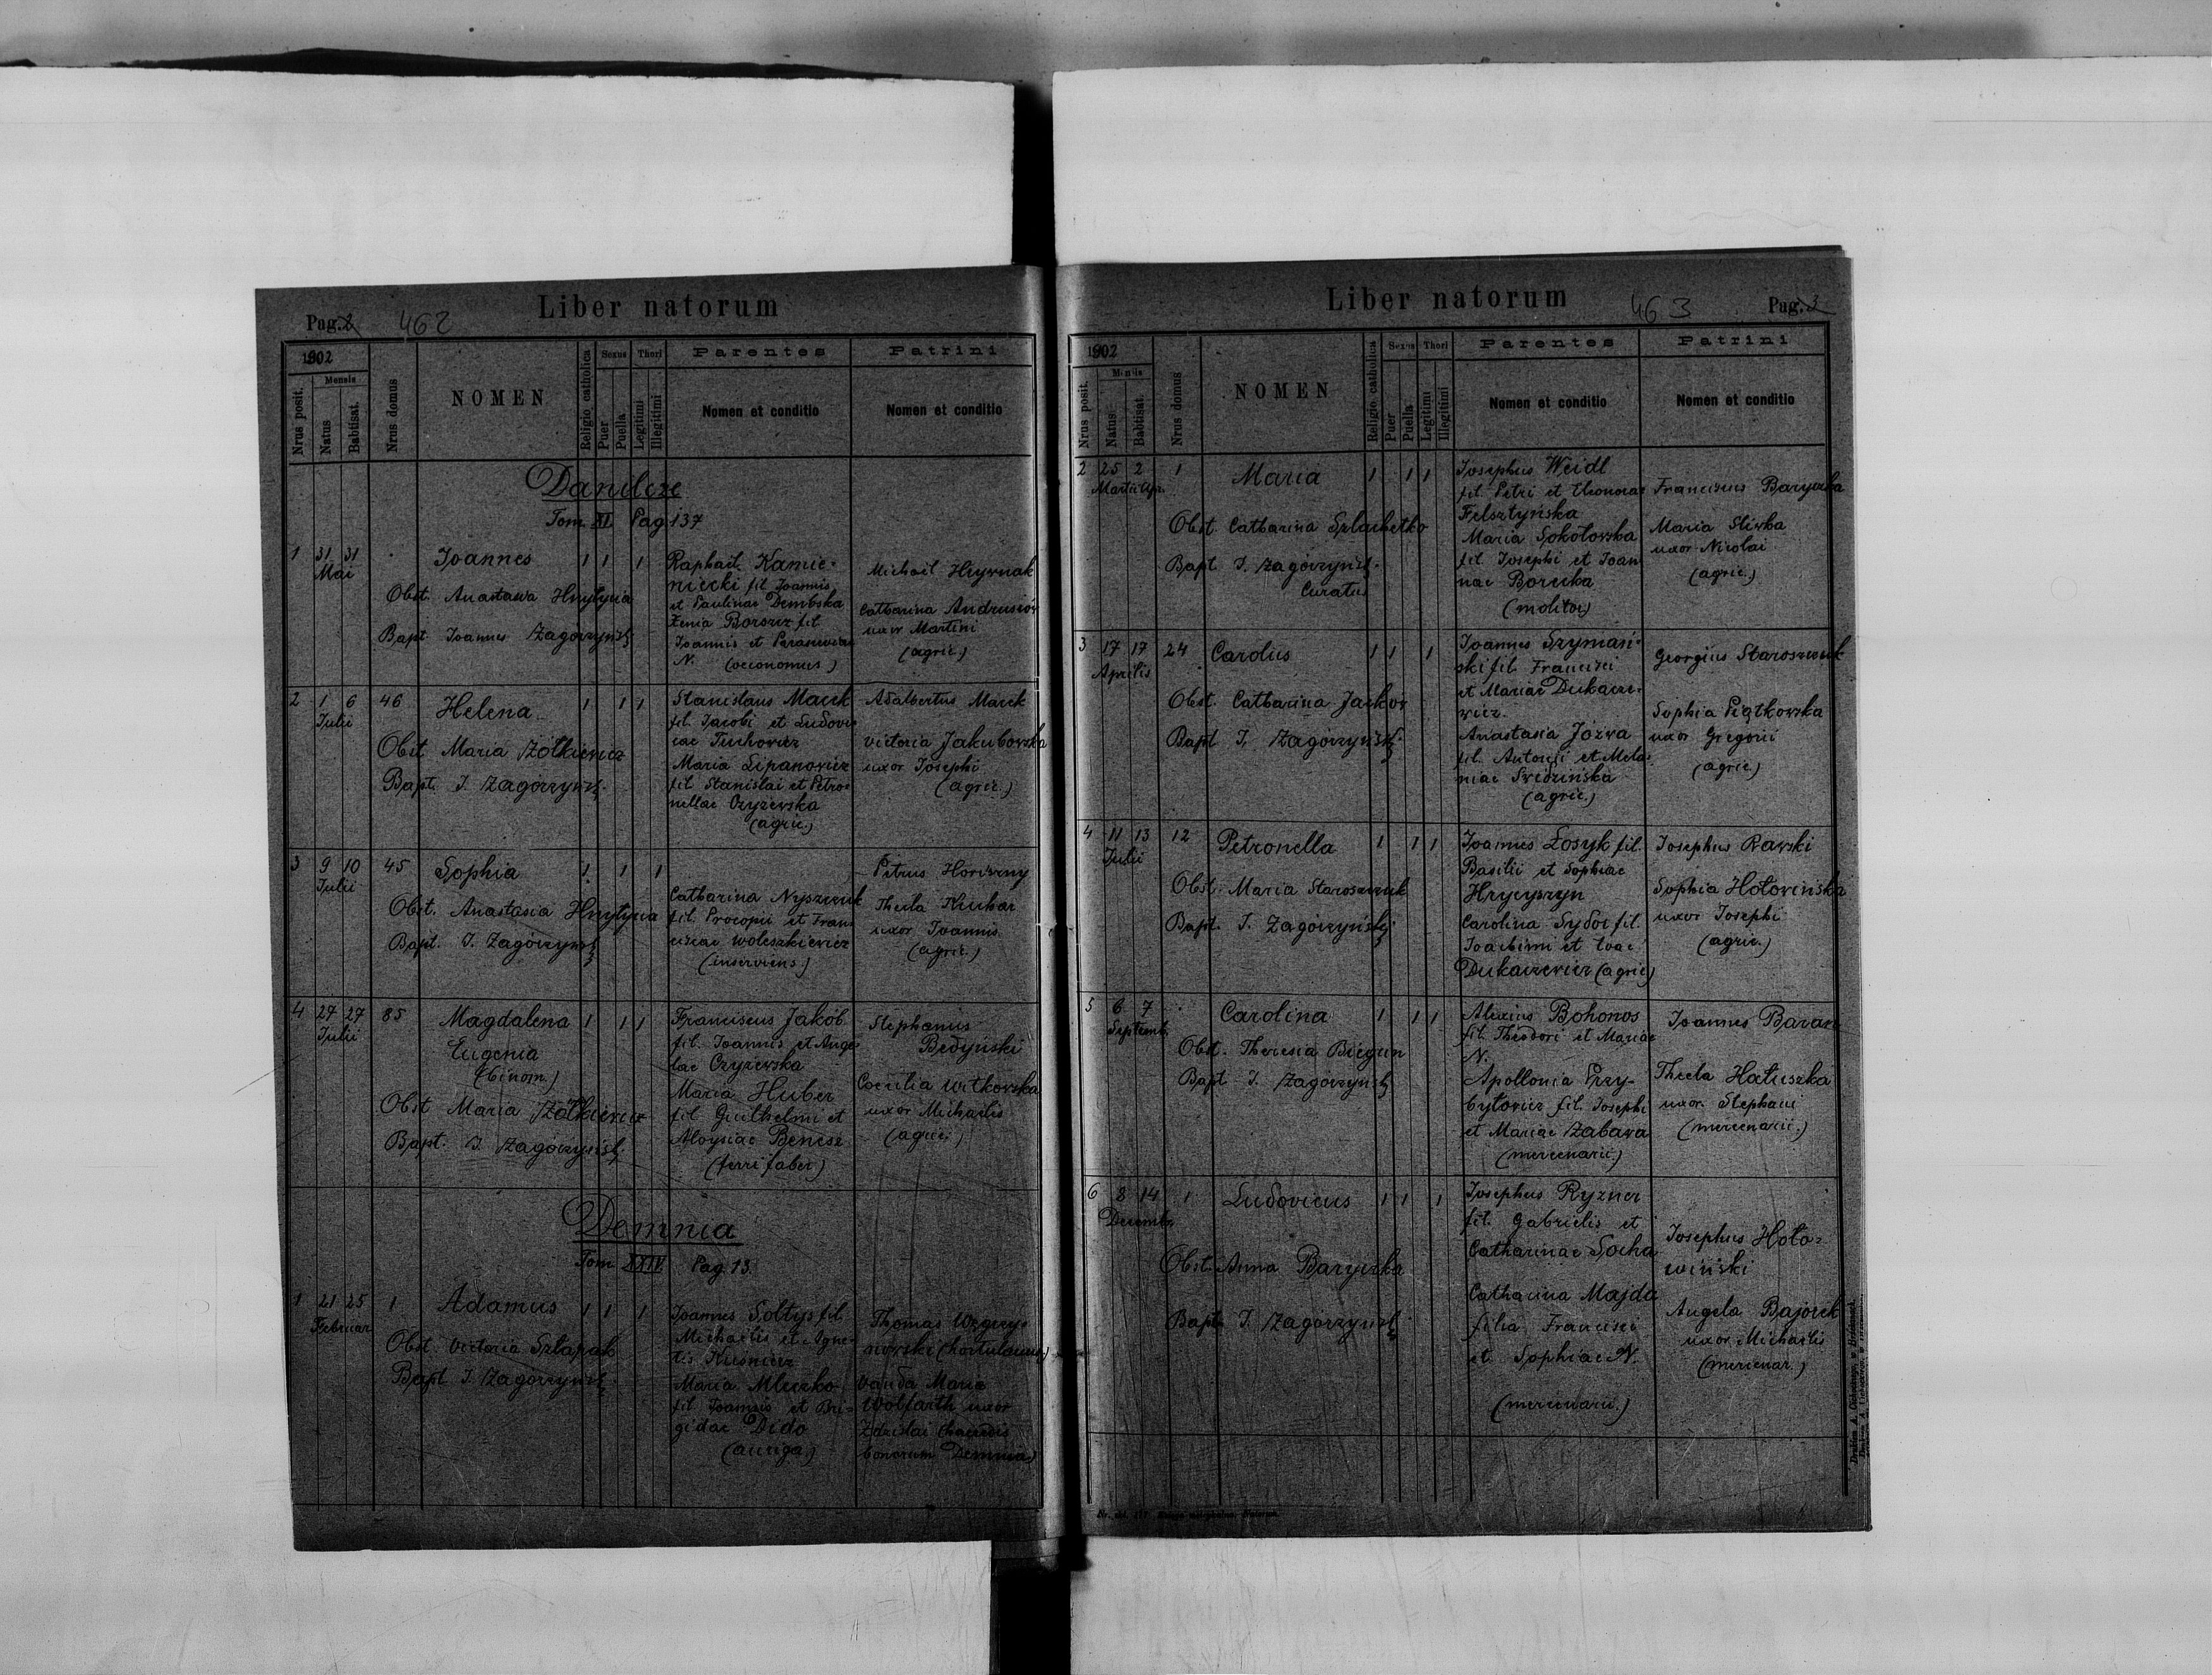 Pag. 2
462
Liber natorum
1902
Nrus posit.
Mensis
Natus
Babtisat.
Nrus domus
NOMEN
Religio catholica
Sexus
Puer
Puella
Thori
Legitimi
Illegitimi
Parentes
Nomen et conditio
Patrini
Nomen et conditio
Danilcze
Tom XI Pag 137
1 31 31 Joannes 1 1 1
Mai
Obst. Anastasia Hnytyna
Bapt Joannes Zagórzyński
Raphael Kamie-
niecki fil Joannis
et Paulinae Dembska
Xenia Borszcz fil
Joannis et
N. (oeconomus)
Michael Hrywnak
Catharina Andrusiów
uxor Martini
(agric.)
2 1 6 46 Helena 1 1 1
Julii
Obst Maria Żółkiewicz
Bapt. J. Zagórzyński
Stanislaus Macek
fil. Jacobi et Ludovi-
cae Tuchowicz
Maria Lipanowicz
fil Stanislai et Petro-
nellae Czyżewska
(agric.)
Adalbertus Macek
Victoria Jakubowska
uxor Josephi
(agric.)
3 9 10 45 Sophia 1 1 1
Julii
Obst. Anastasia Hnytyna
Bapt. J. Zagórzyński
Catharina Nyszczuk
fil. Procopii et Fran-
ciscae Woleszkiewicz
(inserviens)
Petrus Horiszny
Thecla Kuchar
uxor Joannis
(agric.)
4 27 27 85 Magdalena 1 1 1
Julii
Eugenia
(binom.)
Obst Maria Żółkiewicz
Bapt. J. Zagórzyński
Franciscus Jakób
fil. Joannis et Ange-
lae Czyżewska
Maria Huber
fil Guilhelmi et
Aloysiae Benesz
(ferri faber)
Stephanus
Bedyński
Coecilia Witkowska
uxor Michaelis
(agric.)
Demnia
Tom XXIV Pag 13.
1 21 25 1 Adamus 1 1 1
Februar
Obst. Victoria Szlapak
Bapt J. Zagórzyński
Joannes Sołtys fil
Michaelis et Agne-
tis Kuśnierz
Maria Mleczko
fil Joannis et Bri-
gidae Dido
(auriga)
Thomas Węgrzy-
nowski (hortulanus)
Vanda Maria
Wolfarth uxor
Zdzislai (haeredis
bonorum Demnia)
Liber natorum
463
Pag. 3
1902
Nrus posit.
Mensis
Natus
Babtisat.
Nrus domus
NOMEN
Religio catholica
Sexus
Puer
Puella
Thori
Legitimi
Illegitimi
Parentes
Nomen et conditio
Patrini
Nomen et conditio
2 25 2 1 Maria 1 1 1
Martii Apr.
Obst. Catharina Szlachetko
Bapt J. Zagórzyński
Curatus
Josephus Weidl
fil. Petri et Eleonorae
Felsztyńska
Maria Sokołowska
fil. Josephi et Joan-
nae Borucka
(molitor)
Franciscus Baryczka
Maria Sliwka
uxor Nicolai
(agric.)
3 17 17 24 Carolus 1 1 1
Aprilis
Obst. Catharina Jackow
Bapt J. Zagórzyński
Joannes Szymań-
ski fil Francisci
et Mariae Dukacze-
wicz.
Anastasia Jozwa
fil. Antonii et Mela-
niae Swidzińska
(agric.)
Georgius Staroszczuk
Sophia Piątkowska
uxor Gregorii
(agric.)
4 11 13 12 Petronella 1 1 1
Julii
Obst. Maria Staroszczuk
Bapt. J. Zagórzyński
Joannes Łosyk fil.
Basilii et Sophiae
Hrycyszyn
Carolina Sydor fil.
Joachimi et
Dukaczewicz (agric)
Josephus Rawski
Sophia Hołowińska
uxor Josephi
(agric.)
5 6 7 Carolina 1 1 1
Septemb.
Obst. Theresia Biegun
Bapt J. Zagórzyński
Alexius Bohonos
fil. Theodori et Mariae
N.
Apollonia Przy-
bytowicz fil. Josephi
et Mariae Zabawa
(mercenarii)
Joannes Baran
Thecla Hałuszka
uxor. Stephani
(mercenarii.)
6 8 14 1 Ludovicus 1 1 1
Decemb.
Obst. Anna Baryczka
Bapt. J. Zagórzyński
Josephus Ryzner
fil. Gabrielis et
Catharinae Socha
Catharina Majda
filia Francisci
et Sophiae N.
(mercenarii.)
Josephus Hoło-
wiński
Angela Bajorek
uxor Michaelis
(mercenar.)